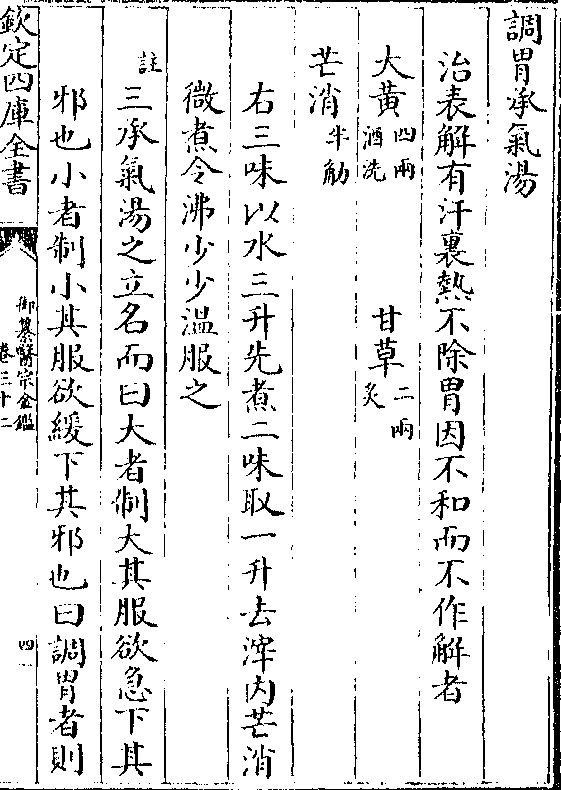 調胃承氣湯
治表解有汗裏熱不除胃因不和而不作解者
大黃四兩酒洗 甘草二兩炙
芒消半觔
右三味以水三升先煮二味取一升去滓内芒消
微煮令沸少少溫服之
註三承氣湯之立名而曰大者制大其服欲急下其
邪也小者制小其服欲緩下其邪也曰調胃者則
欽定四庫全書
御纂醫宗金鑑
卷三十二
四一